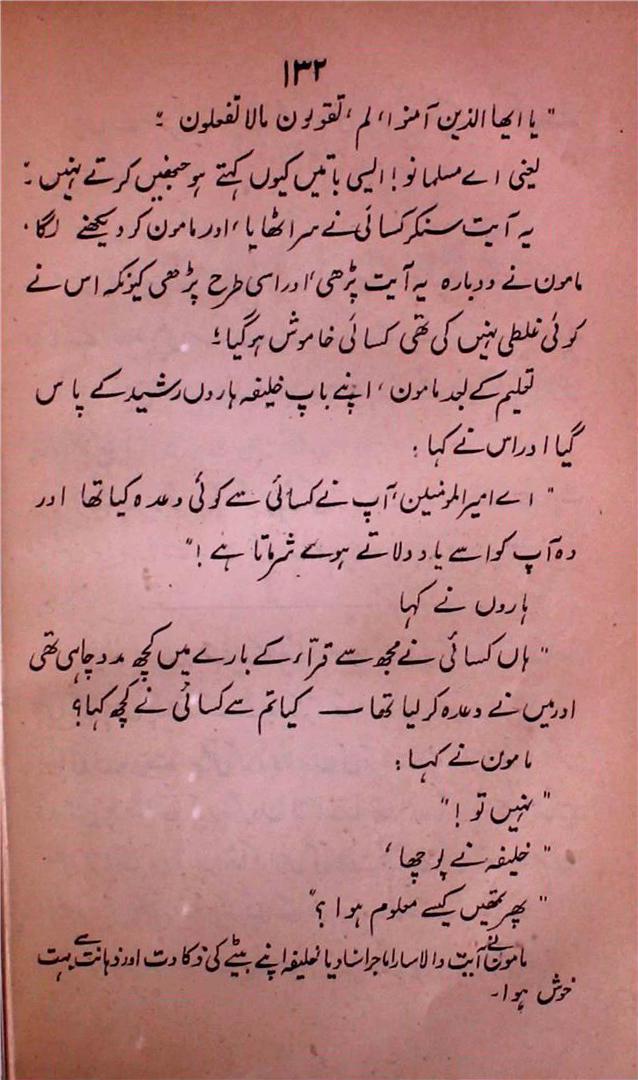 ۱۳۲
" یا ایھا الذین آمنوا، لم، تقولون مالا تفعلون ؛
یعنی اے مسلمانو! ایسی باتیں کیوں کہتے ہو جنھیں کرتے نہیں ۔"
یہ آیت سنکر کسائی نے سر اٹھایا، اور مامون کو دیکھنے لگا۔
مامون نے دوبارہ یہ آیت پڑھی، اور اسی طرح پڑھی کیونکہ اس نے
کوئی غلطی نہیں کی تھی کسائی خاموش ہوگیا؛
تعلیم کے بعد مامون، اپنے باپ خلیفہ ہاروں رشید کے پاس
گیا اور اس نے کہا :
" اے امیر المومنین، آپ نے کسائی سے کوئی وعدہ کیا تھا اور
وہ آپ کو اسے یاد دلاتے ہوئے شرماتا ہے !"
ہاروں نے کہا
" ہاں کسائی نے مجھ سے قرّاء کے بارے میں کچھ مدد چاہی تھی
اور میں نے وعدہ کرلیا تھا — کیا تم سے کسائی نے کچھ کہا؟
مامون نے کہا :
" نہیں تو !"
" خلیفہ نے پوچھا،
" پھر تمھیں کیسے معلوم ہوا ؟"
مامون نے آیت والا سارا ماجرا سنادیا خلیفہ اپنے بیٹے کی ذکاوت اور ذہانت سے بہت
خوش ہوا۔